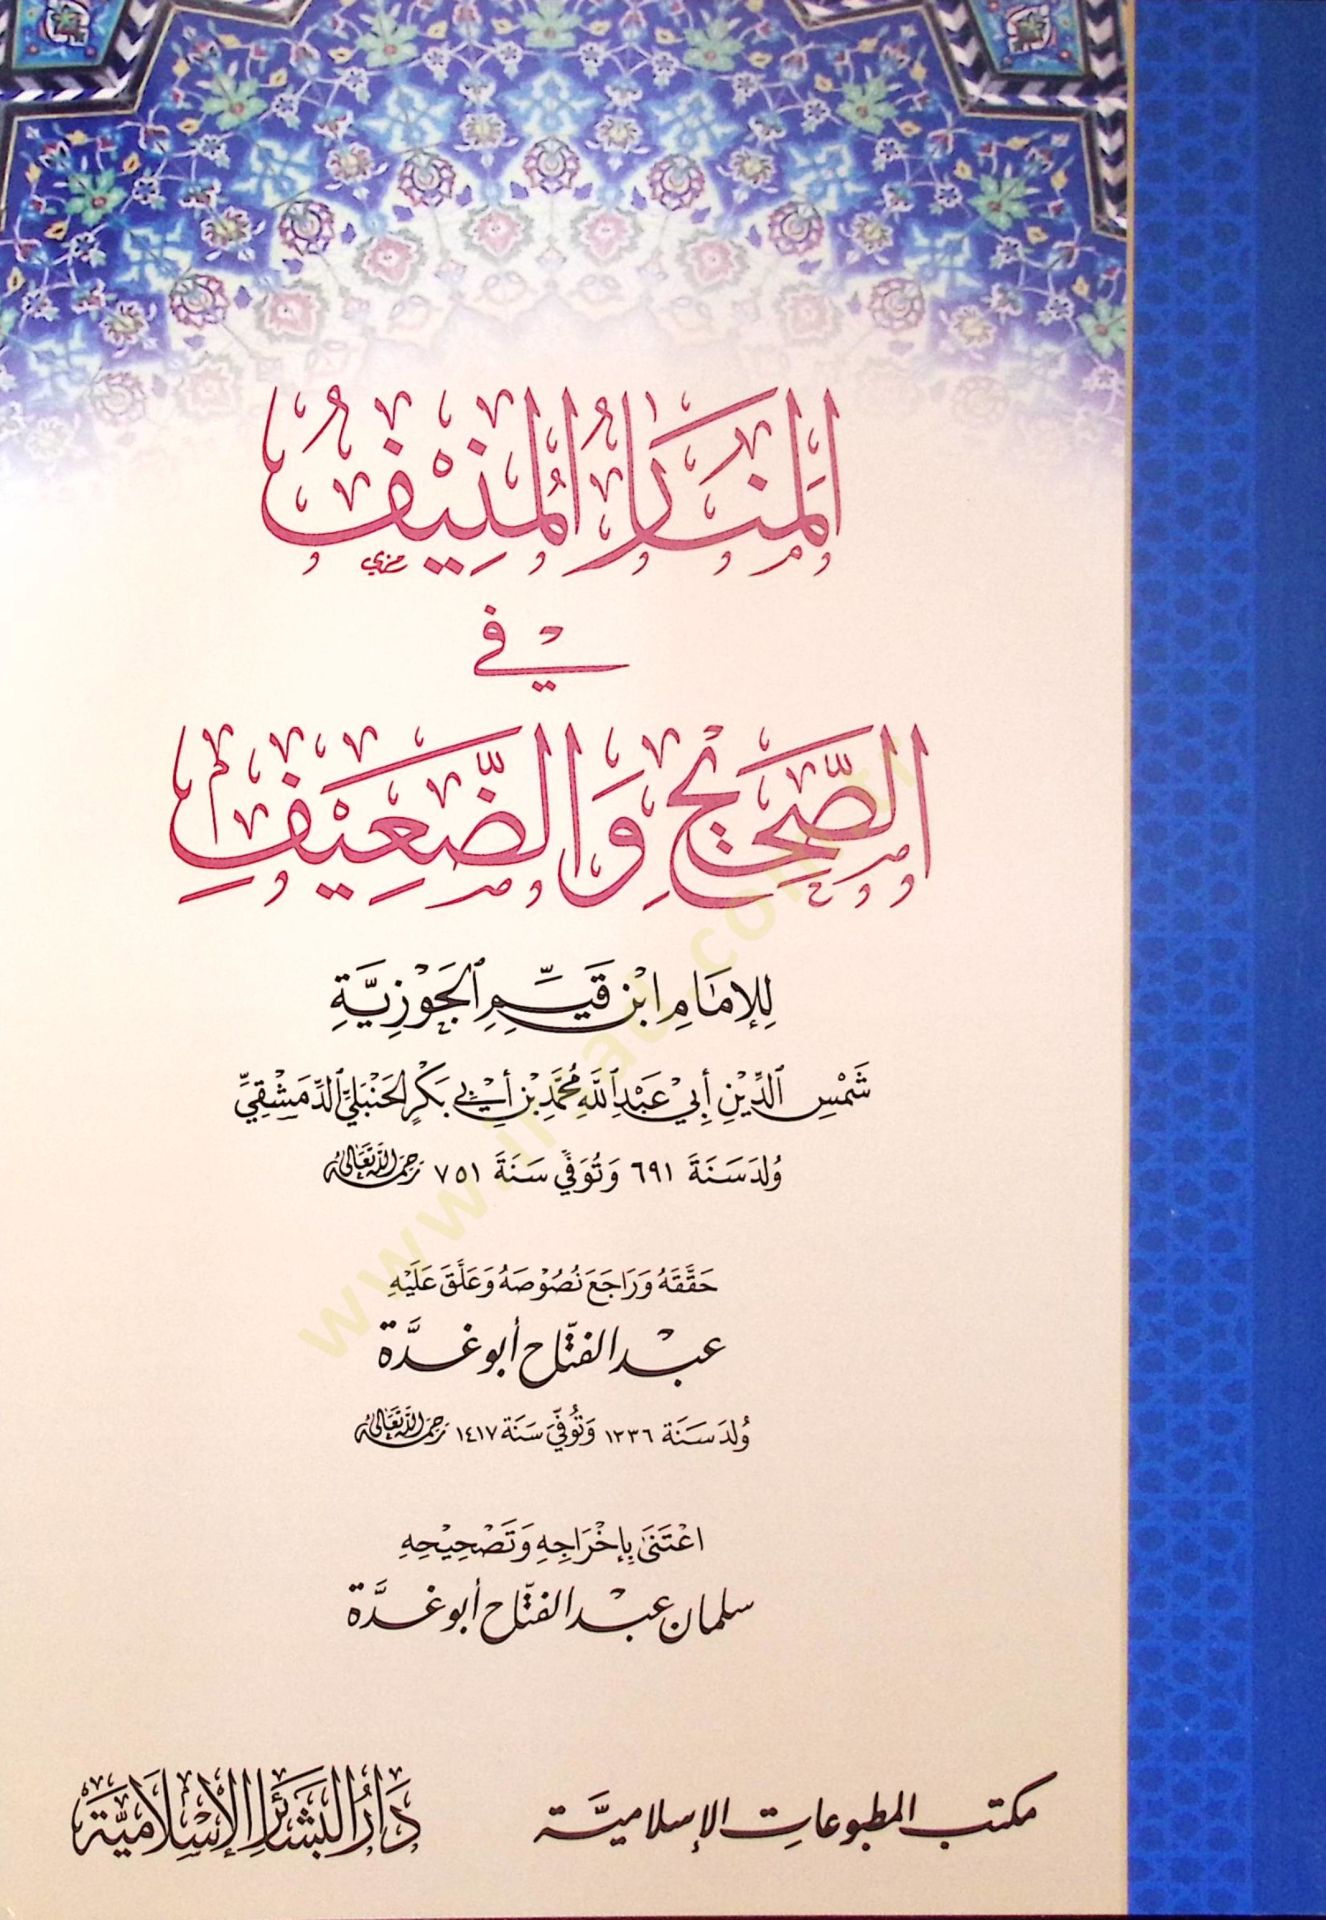 المَنَارُ المُنِيْفُ
فِيْ
الصَّحِيْحِ وَالضَّعِيْفِ
لِلإِمَامِ ابْنِ قَيِّمِ الجَوْزِيَّةِ
شَمْسِ الدِّيْنِ أَبِيْ عَبْدِ اللَّهِ مُحَمَّدِ بْنِ أَبِيْ بَكْرٍ الحَنْبَلِيِّ الدِّمَشْقِيِّ
وُلِدَ سَنَةَ ٦٩١ وَتُوُفِّيَ سَنَةَ ٧٥١ رَحِمَهُ اللَّهُ تَعَالَى
حَقَّقَهُ وَرَاجَعَ نُصُوْصَهُ وَعَلَّقَ عَلَيْهِ
عبْد الفتّاح أبو غدَّة
وُلِدَ سَنَة ١٣٣٦ وَتُوُفِّيَ سَنَة ١٤١٧ رَحِمَهُ اللَّهُ تَعَالَى
اعْتَنَىٰ بِإِخْرَاجِهِ وَتَصْحِيْحِهِ
سلمان عبْد الفتّاح أبو غدَّة
مكتب المطبوعات الإسلاميَّة
دَارُ البَشَائِرِ الإِسْلَامِيَّة